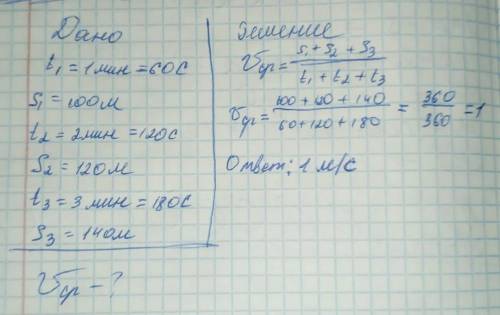 Дано
t₁ = 1 мин = 60с
S₁ = 100м
t₂ = 2мин = 120с
S₂ = 120м
t₃ = 3 мин = 180с
S₃ = 140м
Vср - ?
Решение
Vср = (S₁ + S₂ + S₃) / (t₁ + t₂ + t₃)
Vср = (100 + 120 + 140) / (60 + 120 + 180) = 360/360 = 1
Ответ: 1 м/с